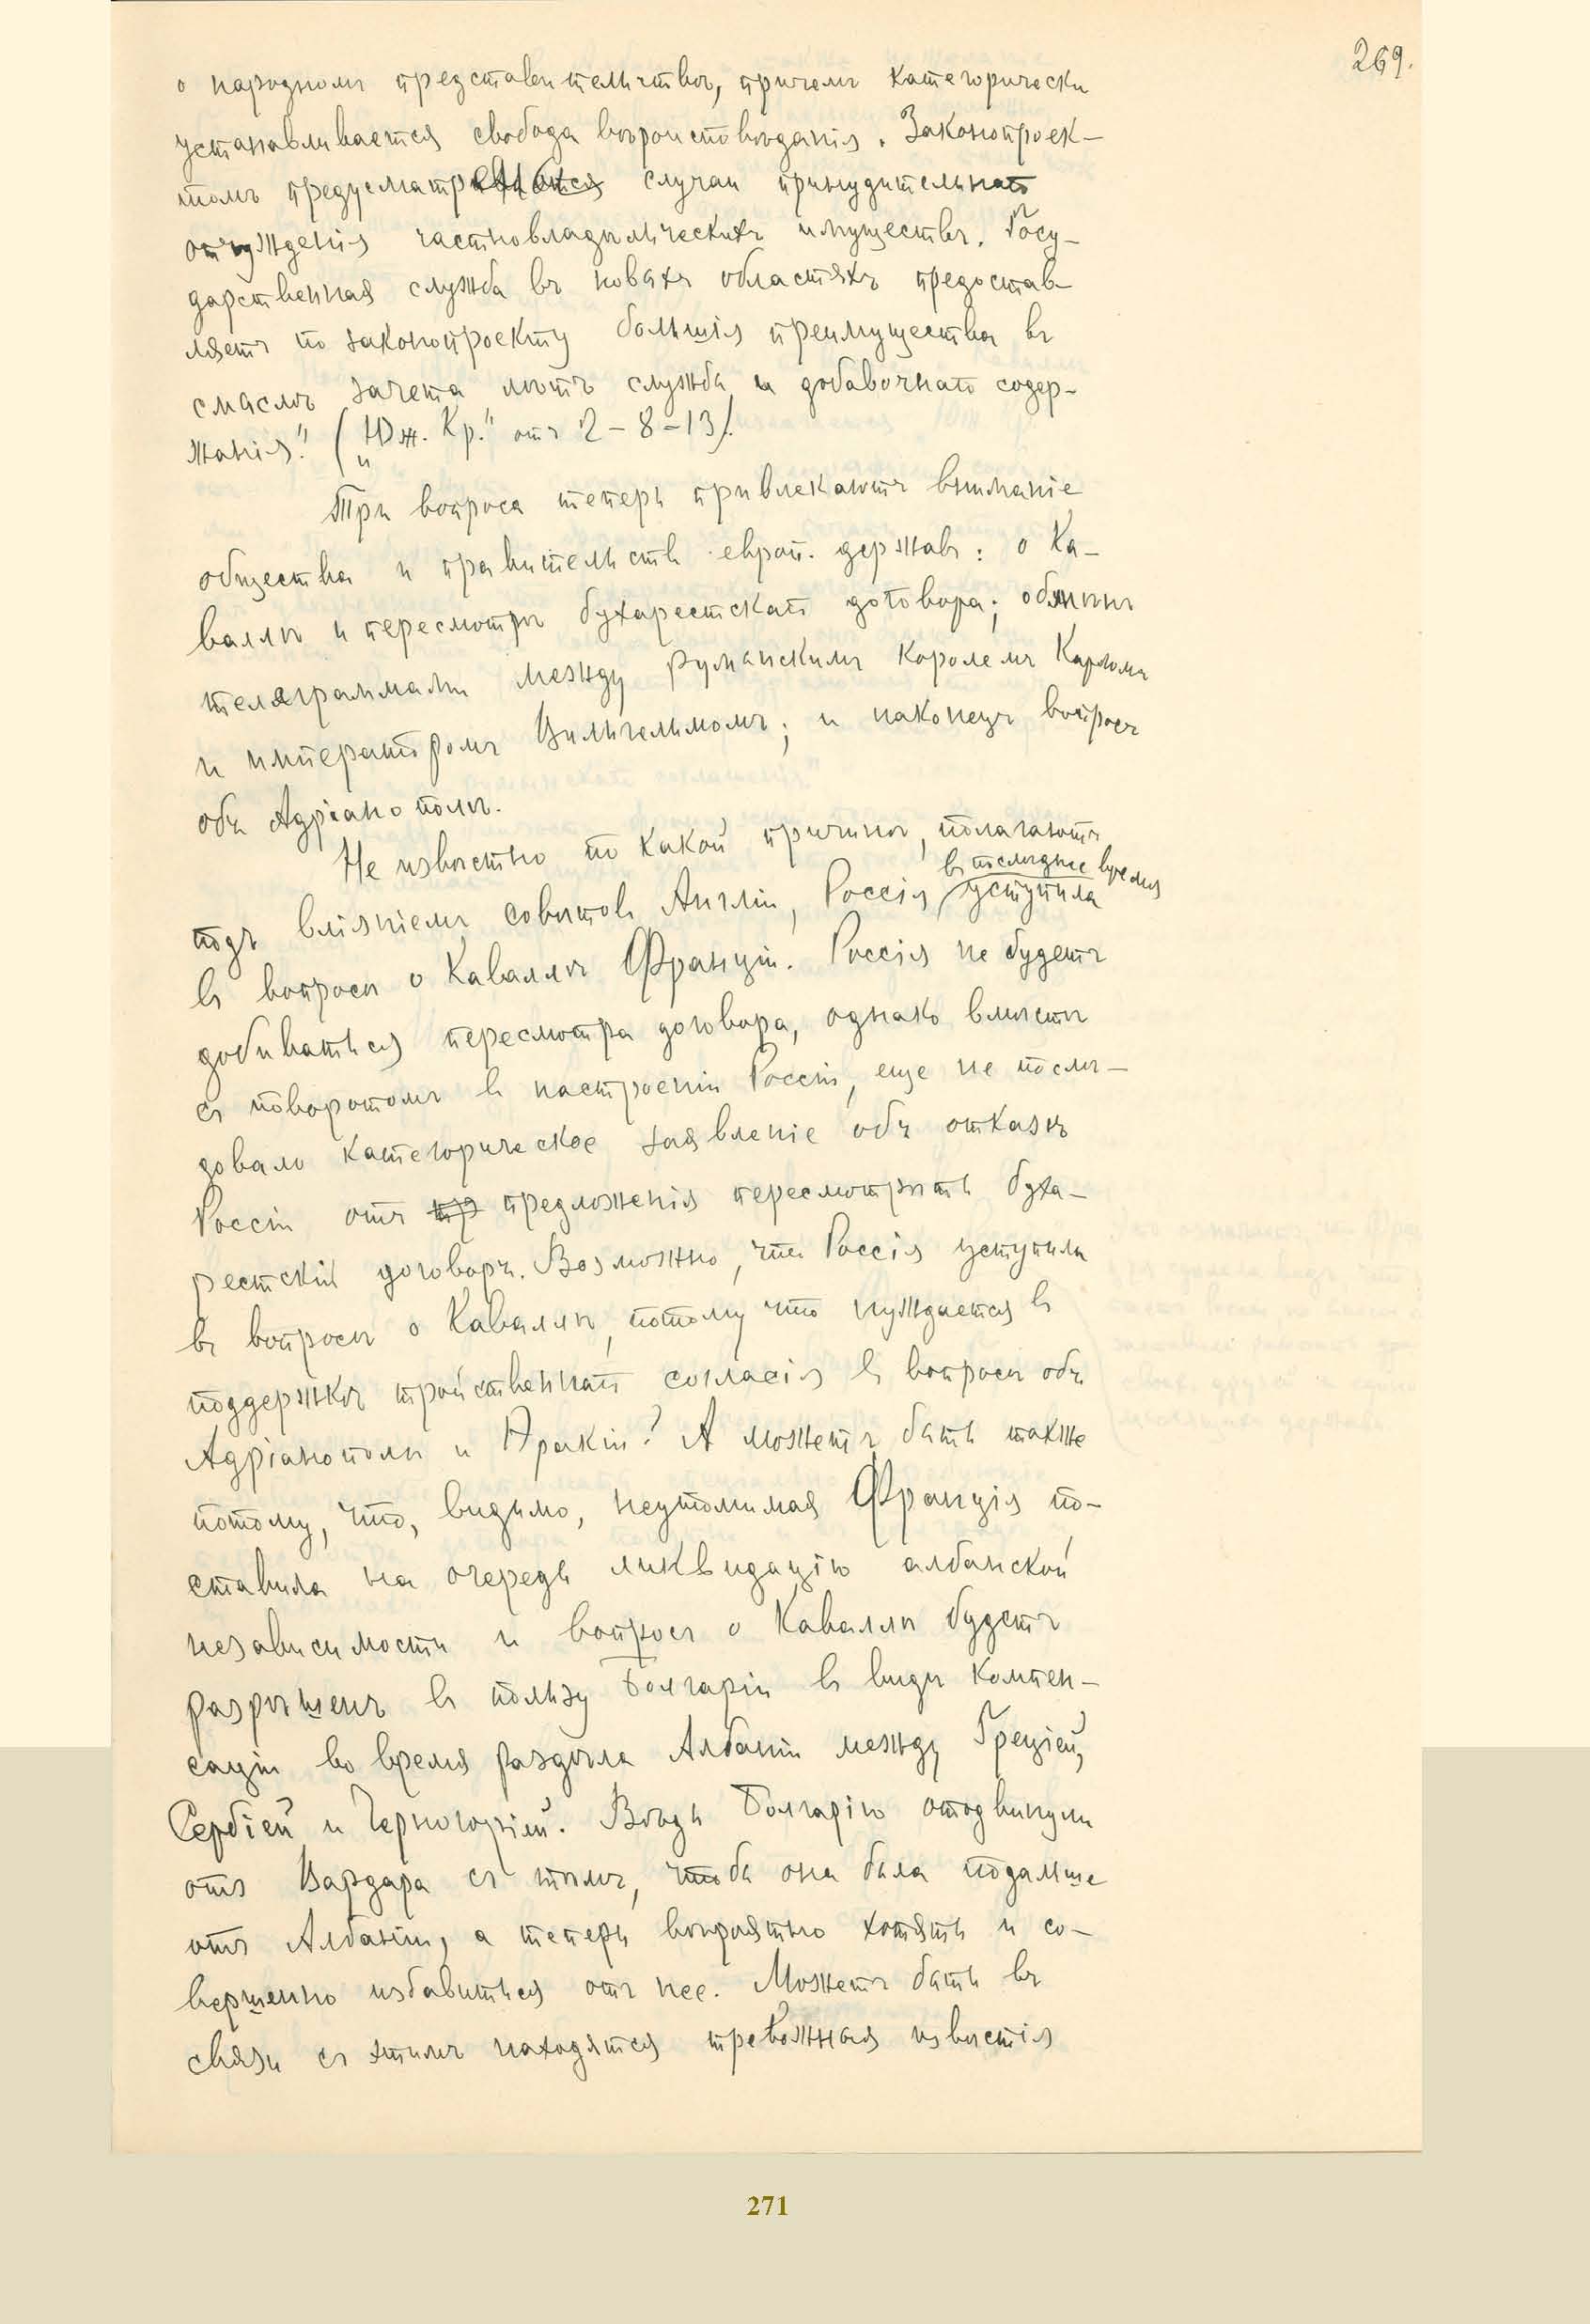 269.
о народномъ представительствѣ, причемъ категорически
устанавливается свобода вѣроисповѣданія. Законопроек-
томъ предусматриваются случаи принудительнаго
отчужденія частновладѣльческихъ имуществъ. Госу-
дарственная служба въ новыхъ областяхъ предостав-
ляетъ по законопроекту большія преимущества въ
смыслѣ зачета лѣтъ службы и добавочнаго содер-
жанія." („Юж. Кр." отъ 2-8-13).
Три вопроса теперь привлекаютъ вниманіе
общества и правительств европ. державъ: о Ка-
валлѣ и пересмотрѣ бухарестскаго договора; обмѣнъ
телеграммами между румынскимъ королемъ Карломъ
и императоромъ Вильгельмомъ; и наконецъ вопросъ
объ Адріанополѣ.
Не извѣстно по какой причинѣ, полагаютъ
в последнее время
подъ вліяніемъ совѣтовъ Англіи, Россія уступила
въ вопросѣ о Каваллѣ Франціи. Россія не будетъ
добиваться пересмотра договора, однако вмѣстѣ
съ поворотомъ въ настроеніи Россіи, еще не послѣ-
довало категорическое заявленіе объ отказѣ
Россіи отъ пр предложенія пересмотрѣть буха-
рестскій договоръ. Возможно, что Россія уступила
въ вопросѣ о Каваллѣ, потому что нуждается въ
поддержкѣ тройственнаго согласія въ вопросѣ объ
Адріанополѣ и Ѳракіи? А можетъ быть также
потому, что, видимо, неутомимая Франція по-
ставила на очередь ликвидацію албанской
независимости и вопросъ о Каваллѣ будетъ
разрѣшенъ въ пользу Болгаріи въ видѣ компен-
саціи во время раздѣла Албаніи между Греціей,
Сербіей и Черногоріей. Вѣдь Болгарію отодвинули
отъ Вардара съ тѣмъ, чтобы она была подальше
отъ Албаніи, а теперь вѣроятно хотятъ и со-
вершенно избавиться отъ нее. Можетъ быть въ
связи съ этимъ находятся тревожныя извѣстія
271